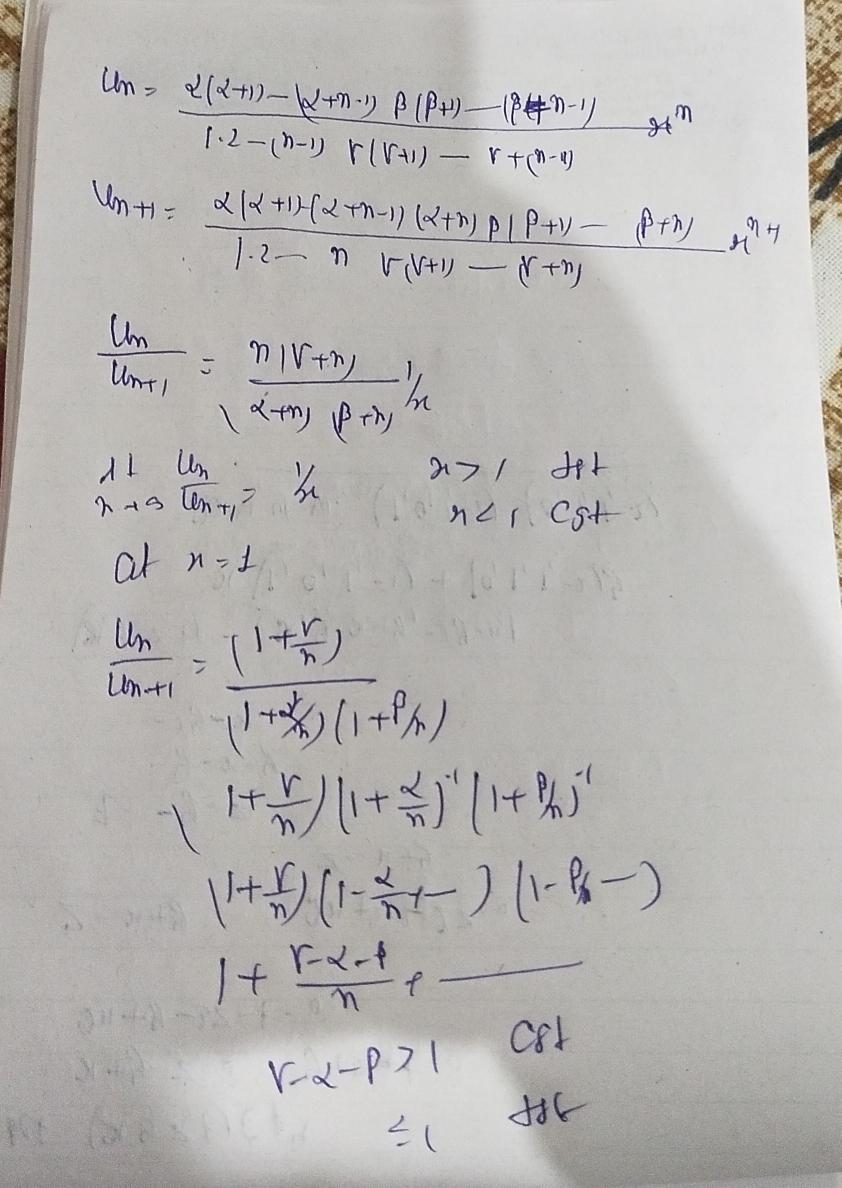 Un = α(α+1)—(α+n-1) β(β+1)—(β+n-1) / 1.2—(n-1) γ(γ+1)—γ+(n-1) x^n
Un+1 = α(α+1)-(α+n-1)(α+n) β(β+1)—(β+n) / 1.2— n γ(γ+1)—(γ+n) x^n+1
Un/Un+1 = n(γ+n) / (α+n)(β+n) 1/x
lt n→∞ Un/Un+1 = 1/x x>1 dgt
x<1 Cgt
at x=1
Un/Un+1 = (1+γ/n) / (1+α/n)(1+β/n)
(1+γ/n)(1+α/n)^-1 (1+β/n)^-1
(1+γ/n)(1-α/n+—)(1-β/n—)
1+ γ-α-β/n + —
γ-α-β>1 Cgt
≤1 dgt